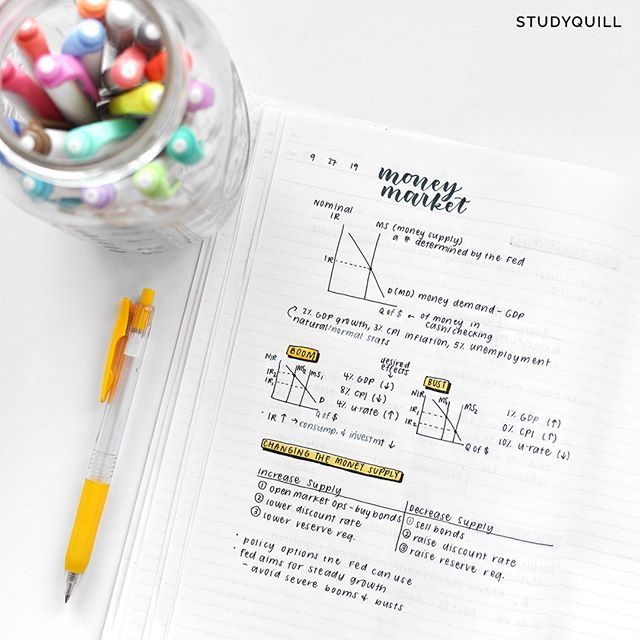 STUDYQUILL
9 27 19
money
market
Nominal
IR
MS (money supply)
a # determined by the Fed
IR
D (MD) money demand - GDP
Q of $ ← of money in
cash/checking
2% GDP growth, 3% CPI inflation, 5% unemployment
natural/normal stats
BOOM
desired
effects
NIR
MS2
MS1
IR2
IR1
D
Q of $
4% GDP (↓)
8% CPI (↓)
4% u-rate (↑)
BUST
NIR
MS1
MS2
IR1
IR2
Q of $
1% GDP (↑)
0% CPI (↑)
10% u-rate (↓)
· IR ↑ → consump. & investmt ↓
CHANGING THE MONEY SUPPLY
Increase Supply
① open market ops - buy bonds
② lower discount rate
③ lower reserve req.
Decrease Supply
① sell bonds
② raise discount rate
③ raise reserve req.
· policy options the Fed can use
· Fed aims for steady growth
- avoid severe booms & busts